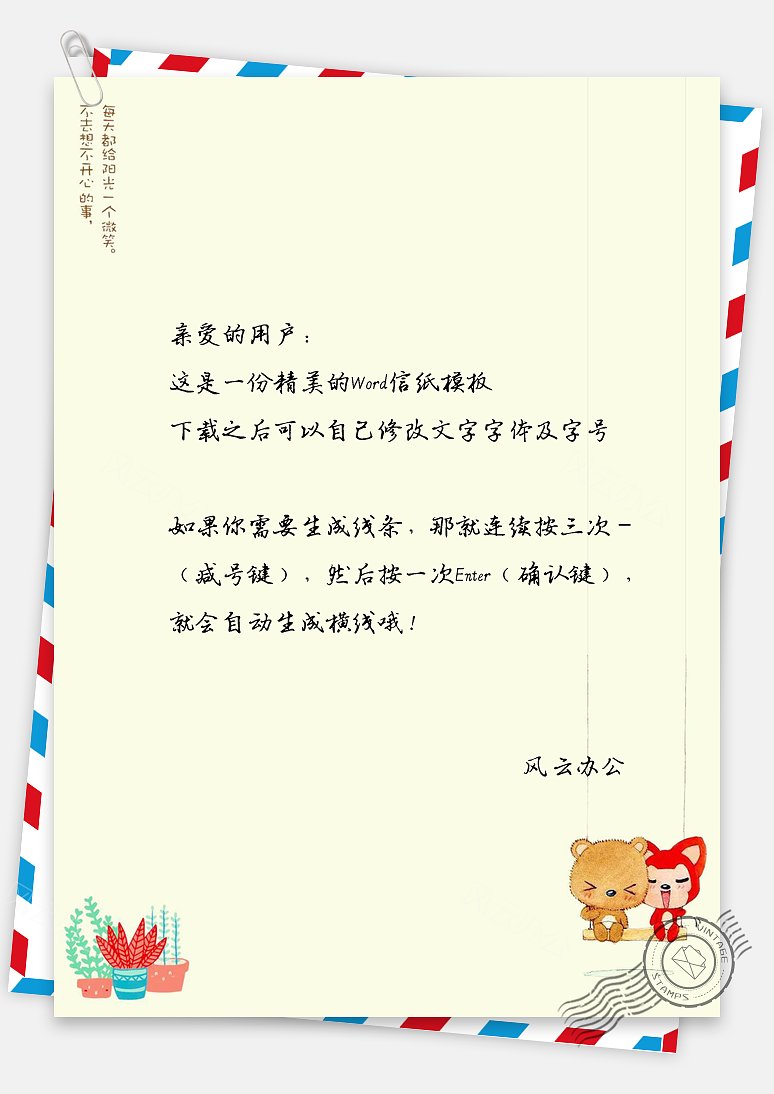 每天都给阳光一个微笑。
不去想不开心的事，
亲爱的用户：
这是一份精美的Word信纸模板
下载之后可以自己修改文字字体及字号
如果你需要生成线条，那就连续按三次－
（减号键），然后按一次Enter（确认键），
就会自动生成横线哦！
风云办公
VINTAGE
STAMPS